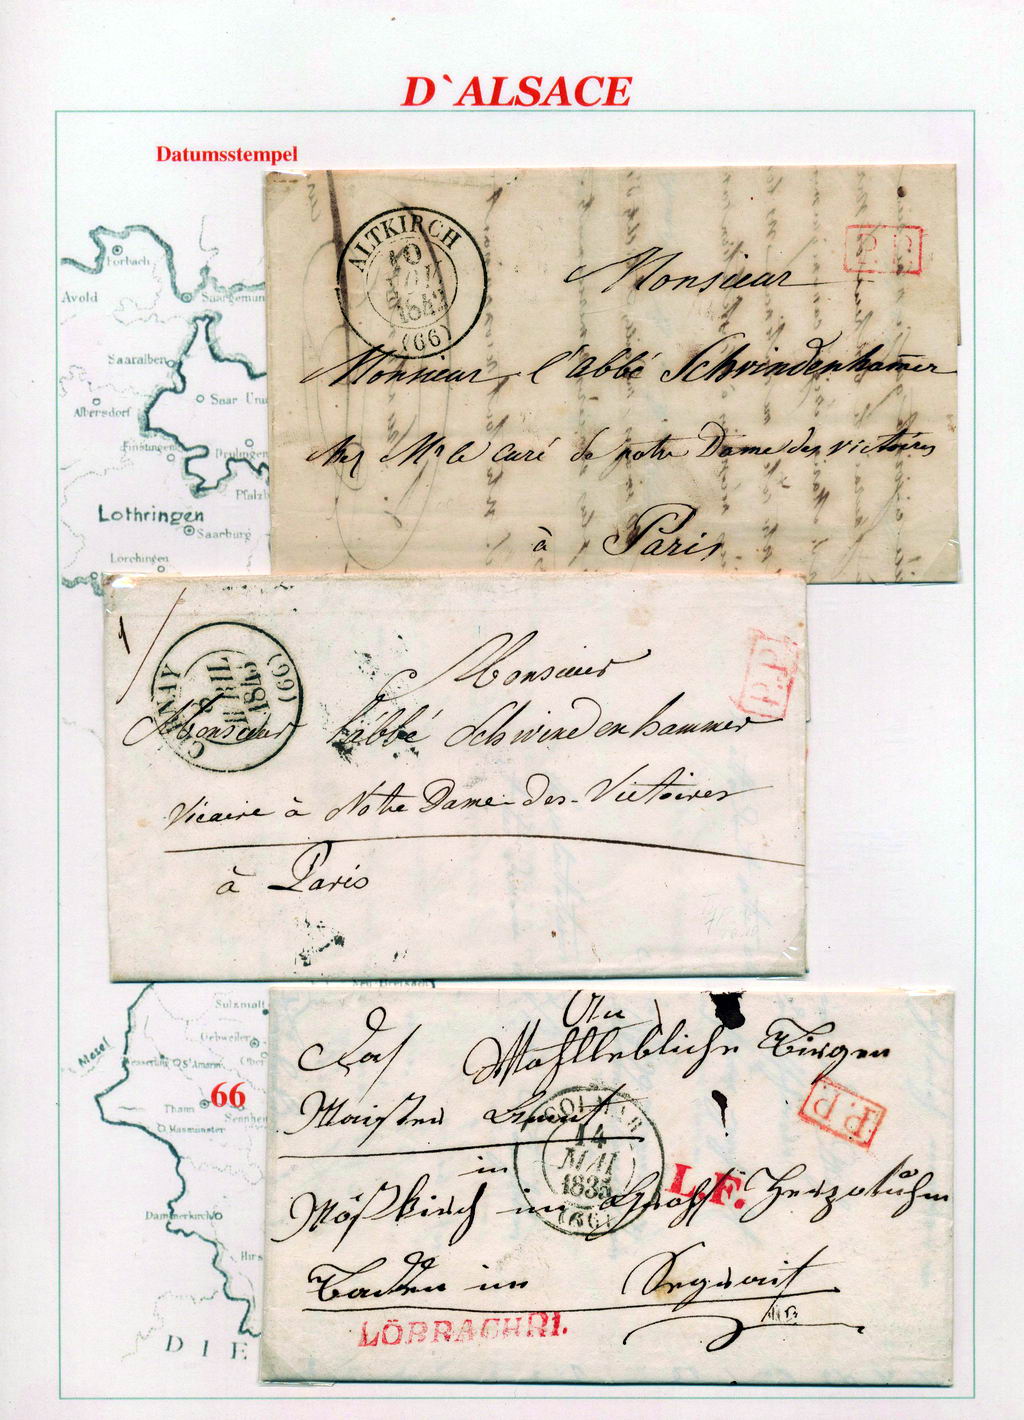 D`ALSACE
Datumsstempel
Forbach
Avold
Saaralben
Albersdorf
Saar Uni
Finstingen
Drulingen
Pfalzb
Lothringen
Saarburg
Lorchingen
ALTKIRCH
10
1842
(66)
P.P.
Monsieur
Monsieur l'abbé Schwindenhammer
chez Mr le curé de notre Dame des victoires
à Paris
1
CERNAY
AVRIL
1843
(66)
P.P.
Monsieur
Monsieur l'abbé Schwindenhammer
Vicaire à Notre Dame-des-Victoires
à Paris
Sulzmatt
Gebweiler
Mosel
St Amarin
Thann
66
Masmünster
Dammerkirch
Hirs
DIE
An
Das Wohllöbliche Bürgen
Maister Amt
COLMAR
14
MAI
1835
(66)
P.P.
L.F.
in
Mößkirch im Großherzotuhm
Baden im Segreis
LÖRRACH R1.